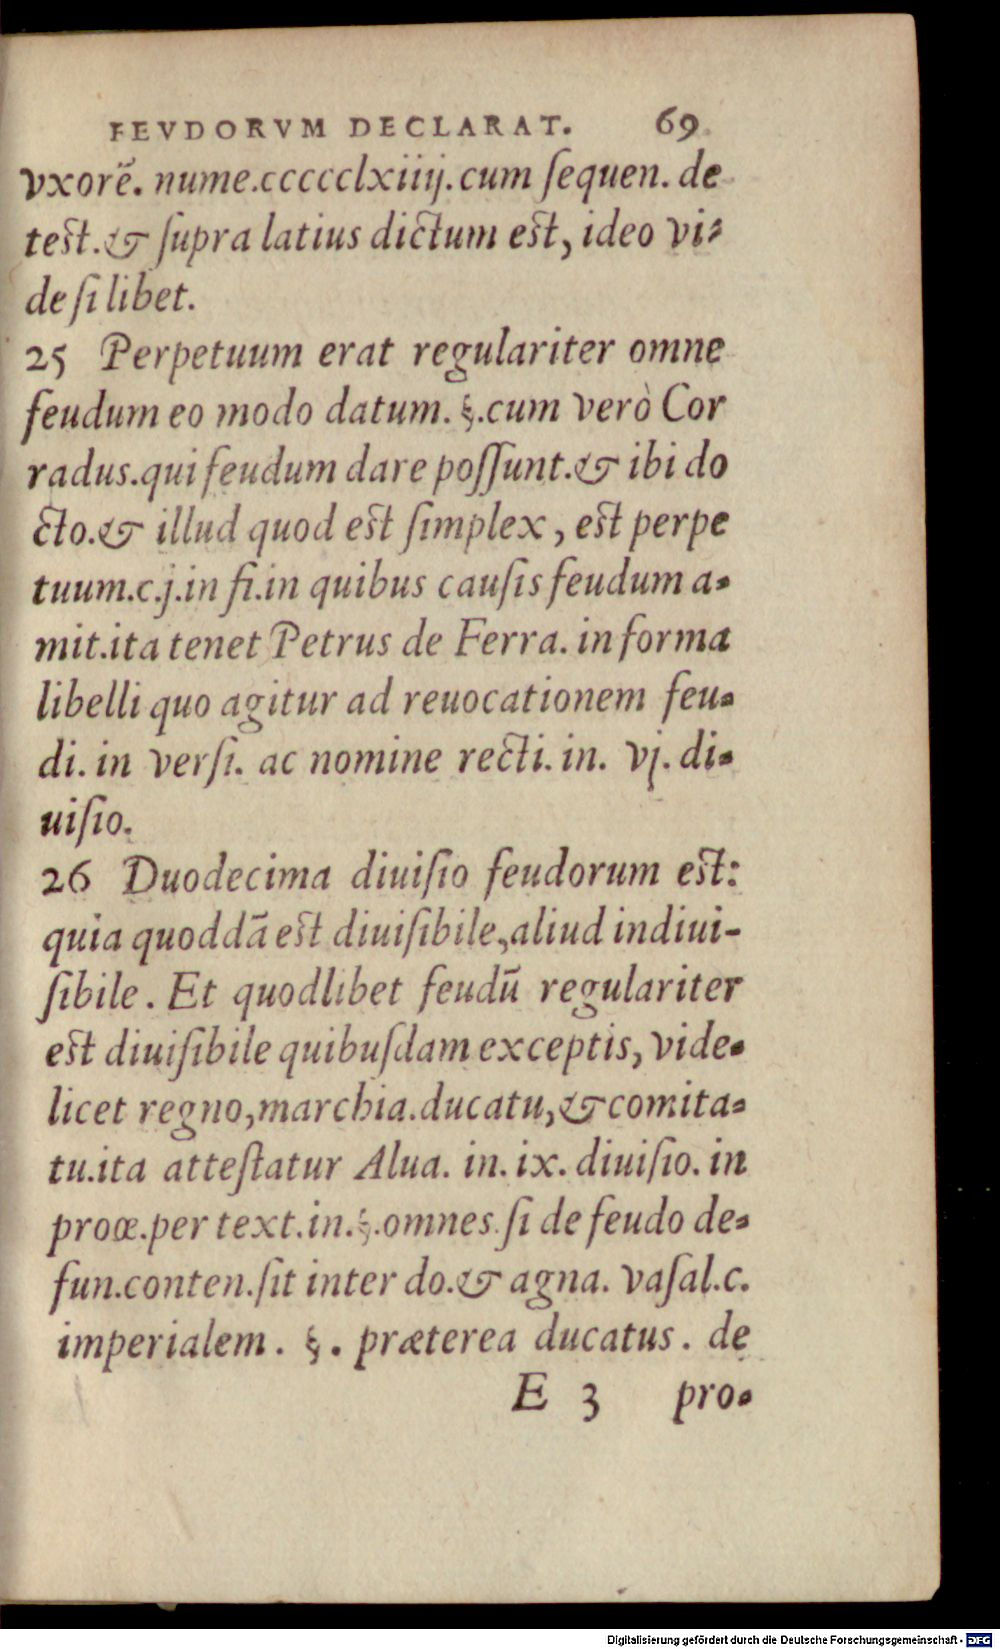 FEVDORVM DECLARAT. 69
vxorē. nume.ccccclxiiij.cum ſequen. de
teſt.& ſupra latius dictum eſt, ideo vi-
de ſi libet.
25 Perpetuum erat regulariter omne
feudum eo modo datum. §.cum verò Cor
radus.qui feudum dare poſſunt.& ibi do
cto.& illud quod eſt ſimplex, eſt perpe
tuum.c.j.in fi.in quibus cauſis feudum a-
mit.ita tenet Petrus de Ferra. in forma
libelli quo agitur ad reuocationem feu-
di. in verſi. ac nomine recti. in. vj. di-
uiſio.
26 Duodecima diuiſio feudorum eſt:
quia quoddā eſt diuiſibile,aliud indiui-
ſibile. Et quodlibet feudū regulariter
eſt diuiſibile quibuſdam exceptis, vide-
licet regno,marchia.ducatu,& comita-
tu.ita atteſtatur Alua. in. ix. diuiſio. in
proœ.per text.in.§.omnes.ſi de feudo de-
fun.conten.ſit inter do.& agna. vaſal.c.
imperialem. §. præterea ducatus. de
E 3 pro-
Digitalisierung gefördert durch die Deutsche Forschungsgemeinschaft - DFG